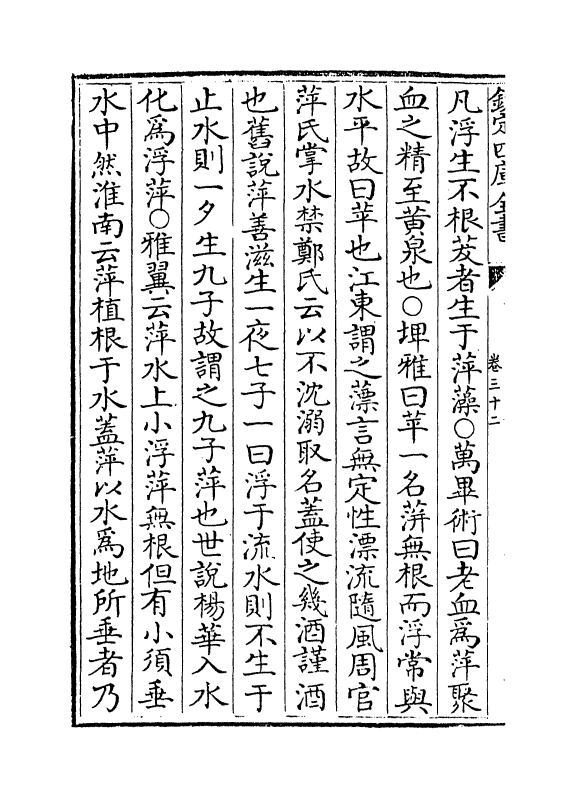 欽定四庫全書
卷三十二
凡浮生不根茇者生于萍藻○萬畢術曰老血為萍聚
血之精至黄泉也○埤雅曰苹一名蓱無根而浮常與
水平故曰苹也江東謂之薸言無定性漂流隨風周官
萍氏掌水禁鄭氏云以不沈溺取名蓋使之幾酒謹酒
也舊說萍善滋生一夜七子一曰浮于流水則不生于
止水則一夕生九子故謂之九子萍也世説楊華入水
化爲浮萍○雅翼云萍水上小浮萍無根但有小須垂
水中然淮南云萍植根于水蓋萍以水爲地所垂者乃